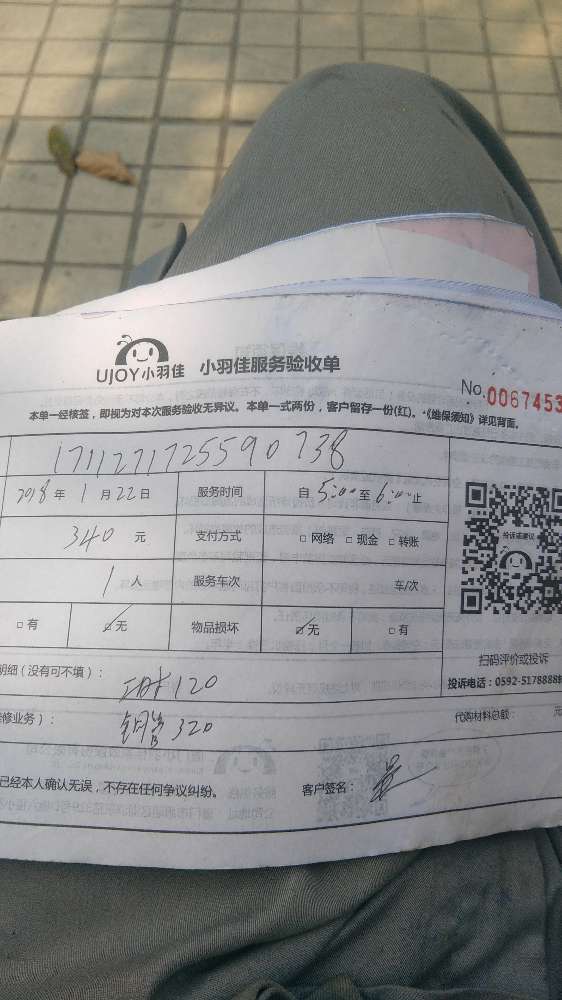 UJOY小羽佳 小羽佳服务验收单
No.0067453
本单一经核签，即视为对本次服务验收无异议。本单一式两份，客户留存一份(红)。*《维保须知》详见背面。
1711271725590738
2018年1月22日 服务时间 自5:00至6:00止
340元 支付方式 □网络 □现金 □转账
1人 服务车次 车/次
投诉或建议
□有 ☑无 物品损坏 ☑无 □有
扫码评价或投诉
明细（没有可不填）： 120
投诉电话：0592-5178888
修业务）： 钢管320 代购材料总额： 元
已经本人确认无误，不存在任何争议纠纷。 客户签名：